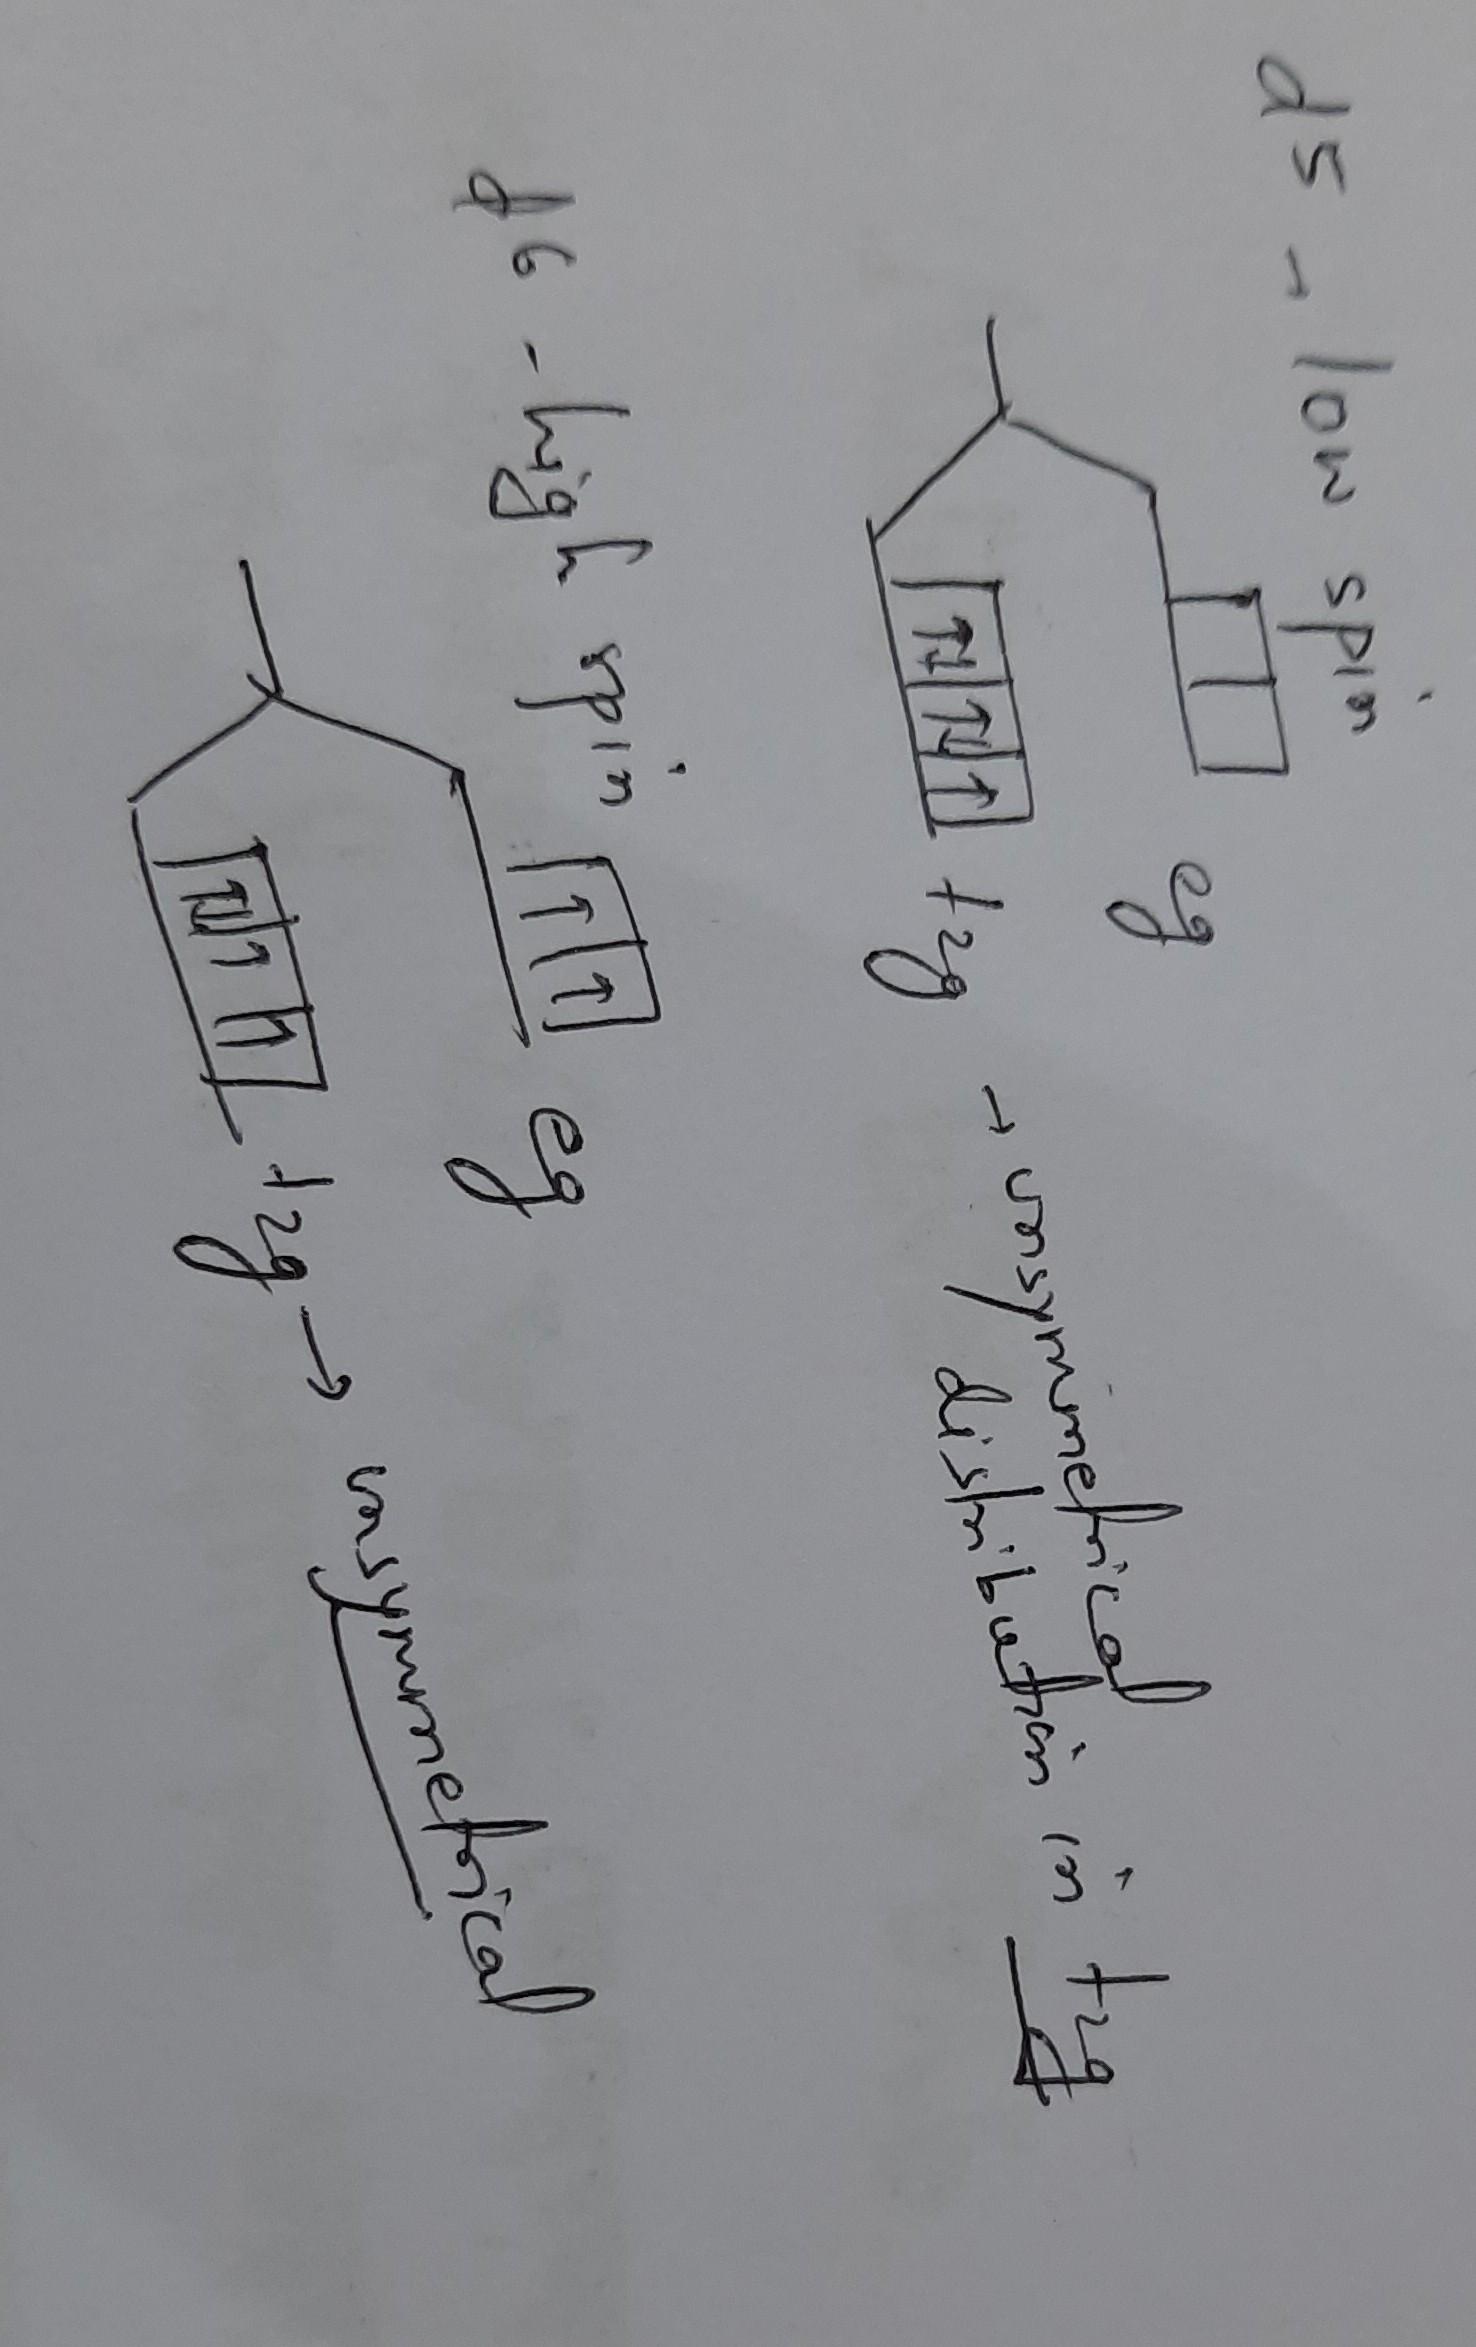 d5 - low spin
eg
t2g → unsymmetrical
distribution in t2g
d6 - high spin
eg
t2g → unsymmetrical